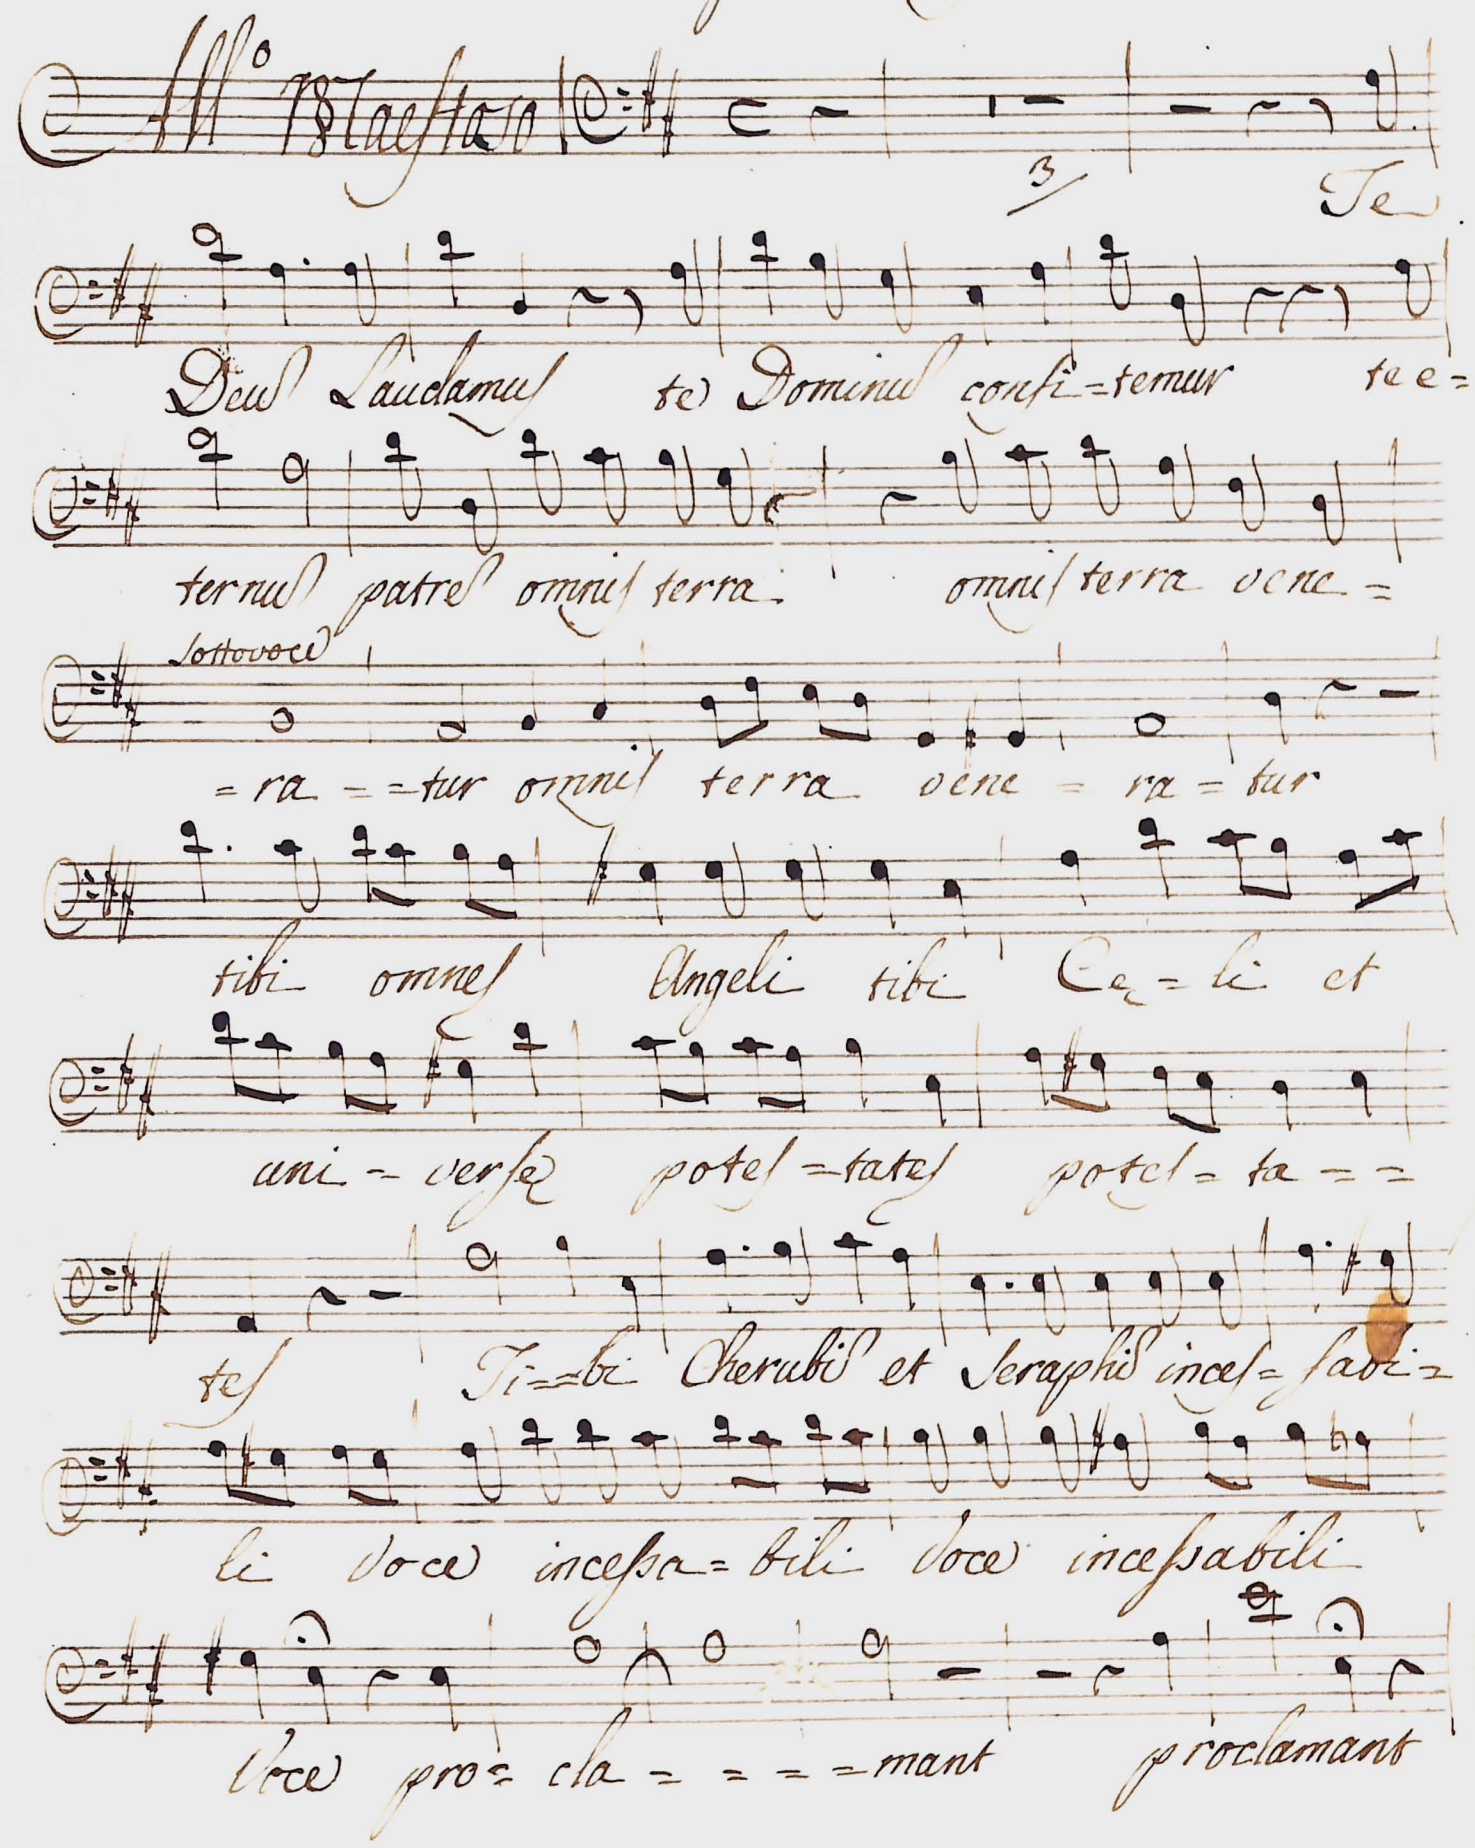 All.o Maestoso
3
Te
Deus Laudamus te Dominū confi-temur te e=
ternus patrē omnis terra. omnis terra vene=
Sottovoce
=ra - =tur omnis terra vene - ra = tur
tibi omnes Angeli tibi Cę=li et
uni - versę potes =tates potes = ta = =
tes Ti==bi Cherubī et Seraphī inces= sabi=
li voce incessa=bili voce incessabili
voce pro= cla = = = =mant proclamant